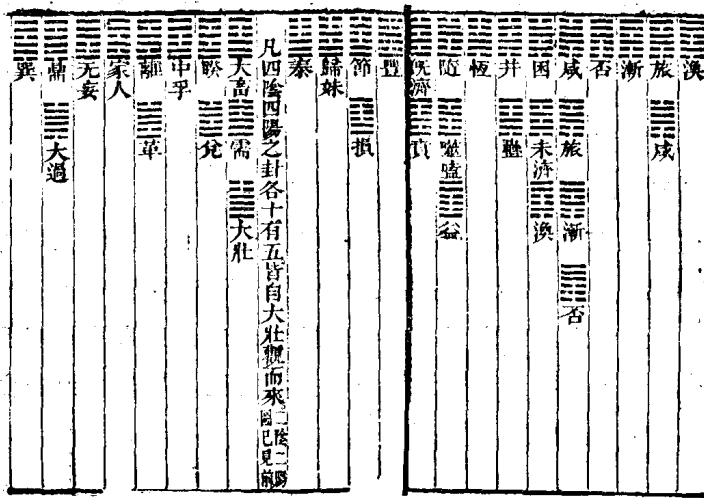 渙
旅 咸
漸
否
咸 旅 漸 否
困 未濟 渙
井 蠱
恆
隨 噬嗑 益
既濟 賁
豐
節 損
歸妹
泰
凡四陰四陽之卦各十有五皆自大壯觀而來二陰二陽圖已見前
大畜 需 大壯
睽 兌
中孚
離 革
家人
无妄
鼎 大過
巽